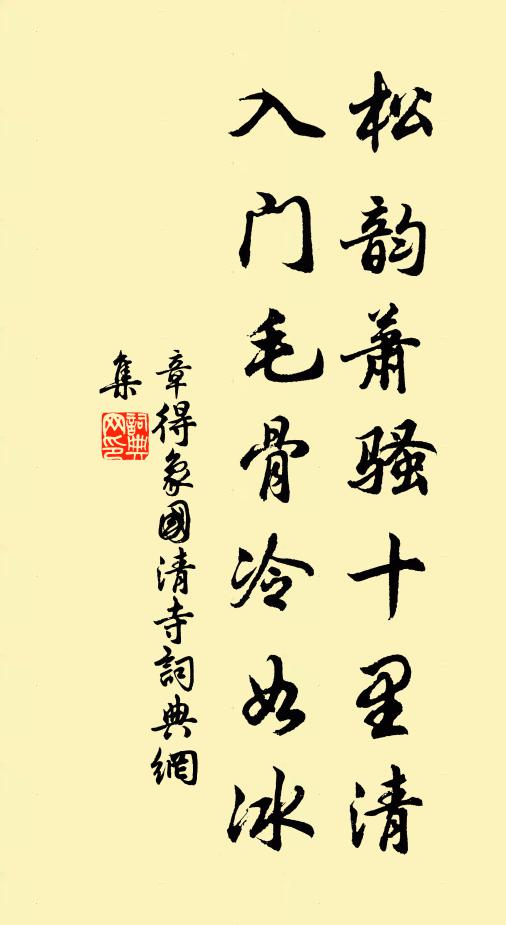 松韵萧骚十里清
入门毛骨冷如冰
章得象國清寺詞典網
集
詞典网印